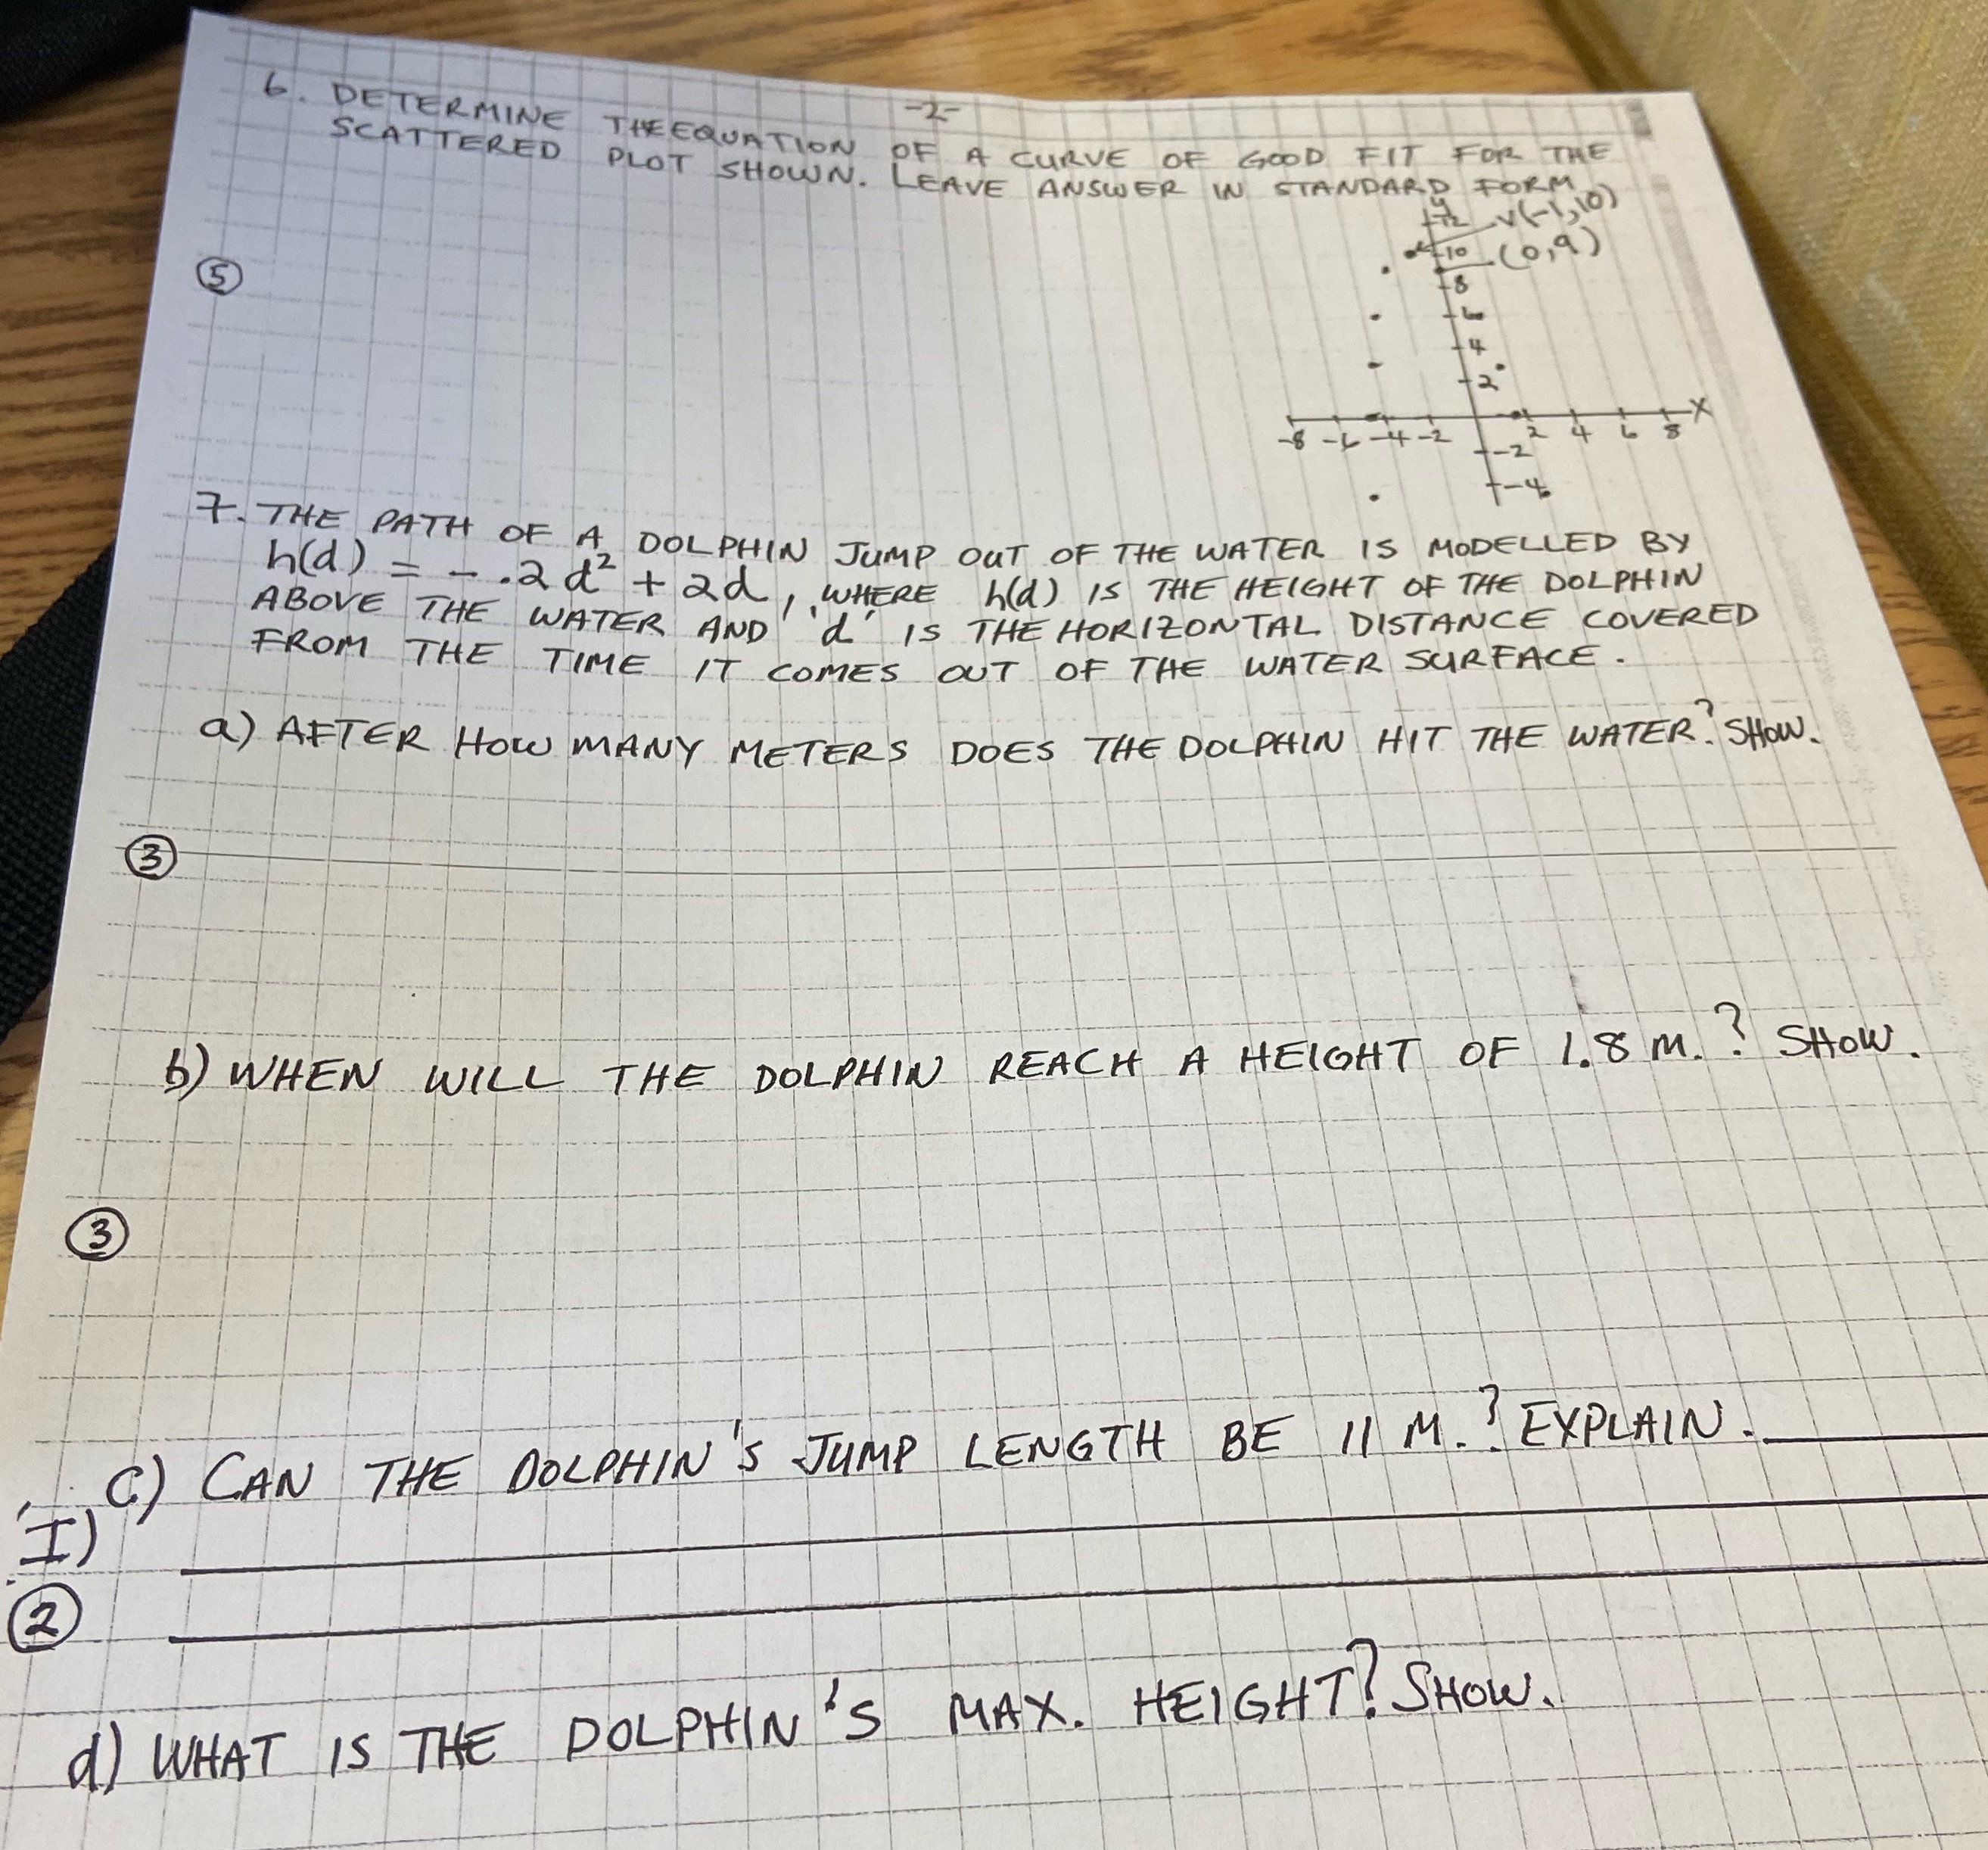 -2-
6. DETERMINE THE EQUATION OF A CURVE OF GOOD FIT FOR THE
SCATTERED PLOT SHOWN. LEAVE ANSWER IN STANDARD FORM.
y
12 V(-1,10)
10 (0,9)
8
6
4
2
-8 -6 -4 -2 2 4 6 8 X
-2
-4
5
7. THE PATH OF A DOLPHIN JUMP OUT OF THE WATER IS MODELLED BY
h(d) = -.2d² + 2d, WHERE h(d) IS THE HEIGHT OF THE DOLPHIN
ABOVE THE WATER AND 'd' IS THE HORIZONTAL DISTANCE COVERED
FROM THE TIME IT COMES OUT OF THE WATER SURFACE.
a) AFTER HOW MANY METERS DOES THE DOLPHIN HIT THE WATER? SHOW.
3
b) WHEN WILL THE DOLPHIN REACH A HEIGHT OF 1.8 M.? SHOW.
3
c) CAN THE DOLPHIN'S JUMP LENGTH BE 11 M.? EXPLAIN.
I)
2
d) WHAT IS THE DOLPHIN'S MAX. HEIGHT? SHOW.